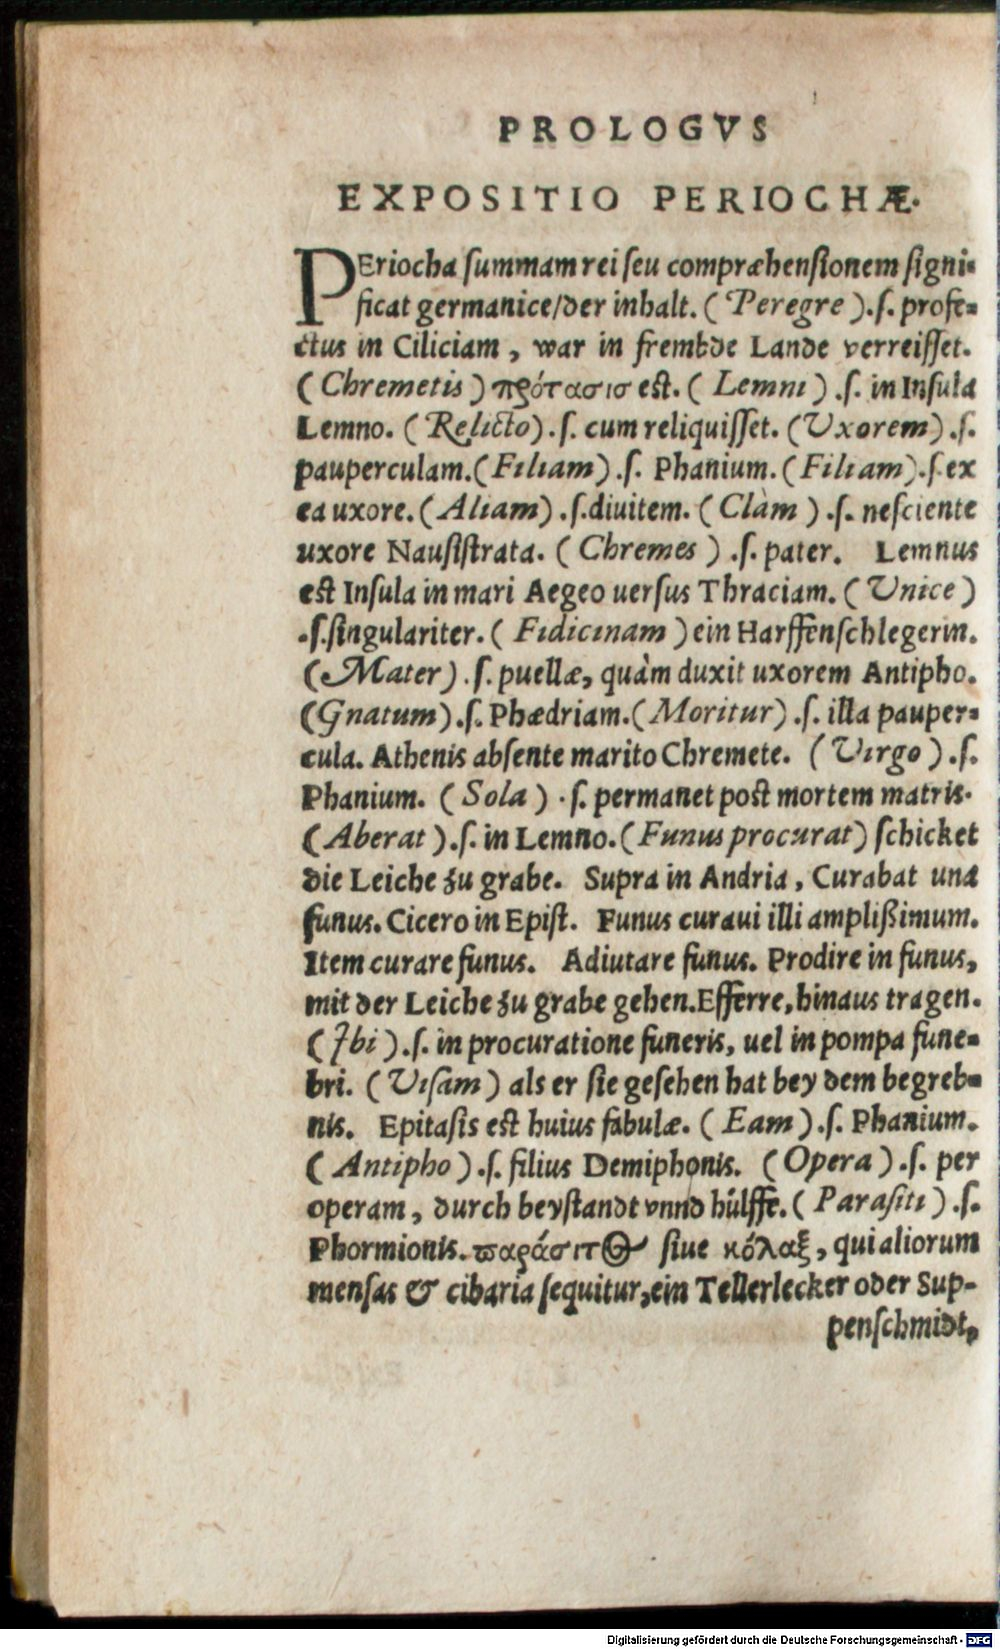 PROLOGVS
EXPOSITIO PERIOCHÆ.
PEriocha ſummam rei ſeu compræhenſionem ſigni-
ficat germanice/der inhalt. (Peregre).ſ. profe-
ctus in Ciliciam, war in frembde Lande verreiſſet.
(Chremetis) πρότασισ est. (Lemni).ſ. in Inſula
Lemno. (Relicto).ſ. cum reliquiſſet. (Uxorem).ſ.
pauperculam.(Filiam).ſ. Phanium.(Filiam).ſ ex
ea uxore.(Aliam).ſ.diuitem.(Clàm).ſ. neſciente
uxore Nauſiſtrata. (Chremes).ſ. pater. Lemnus
est Inſula in mari Aegeo uerſus Thraciam.(Unice)
.ſ.ſingulariter.(Fidicinam) ein Harffenſchlegerin.
(Mater).ſ. puellæ, quàm duxit uxorem Antipho.
(Gnatum).ſ. Phædriam.(Moritur).ſ. illa pauper-
cula. Athenis abſente marito Chremete. (Virgo).ſ.
Phanium. (Sola).ſ. permanet post mortem matris.
(Aberat).ſ. in Lemno.(Funus procurat) ſchicket
die Leiche zu grabe. Supra in Andria, Curabat una
funus. Cicero in Epiſt. Funus curaui illi amplißimum.
Item curare funus. Adiutare funus. Prodire in funus,
mit der Leiche zu grabe gehen.Efferre,hinaus tragen.
(Ibi).ſ. in procuratione funeris, uel in pompa fune-
bri. (Viſam) als er ſie geſehen hat bey dem begreb-
nis. Epitaſis est huius fabulæ. (Eam).ſ. Phanium.
(Antipho).ſ. filius Demiphonis. (Opera).ſ. per
operam, durch beyſtandt vnnd hülffe.(Paraſiti).ſ.
Phormionis. ϖαράσιτος ſiue κόλαξ, qui aliorum
menſas & cibaria ſequitur,ein Tellerlecker oder Sup-
penſchmidt,
Digitalisierung gefördert durch die Deutsche Forschungsgemeinschaft - DFG